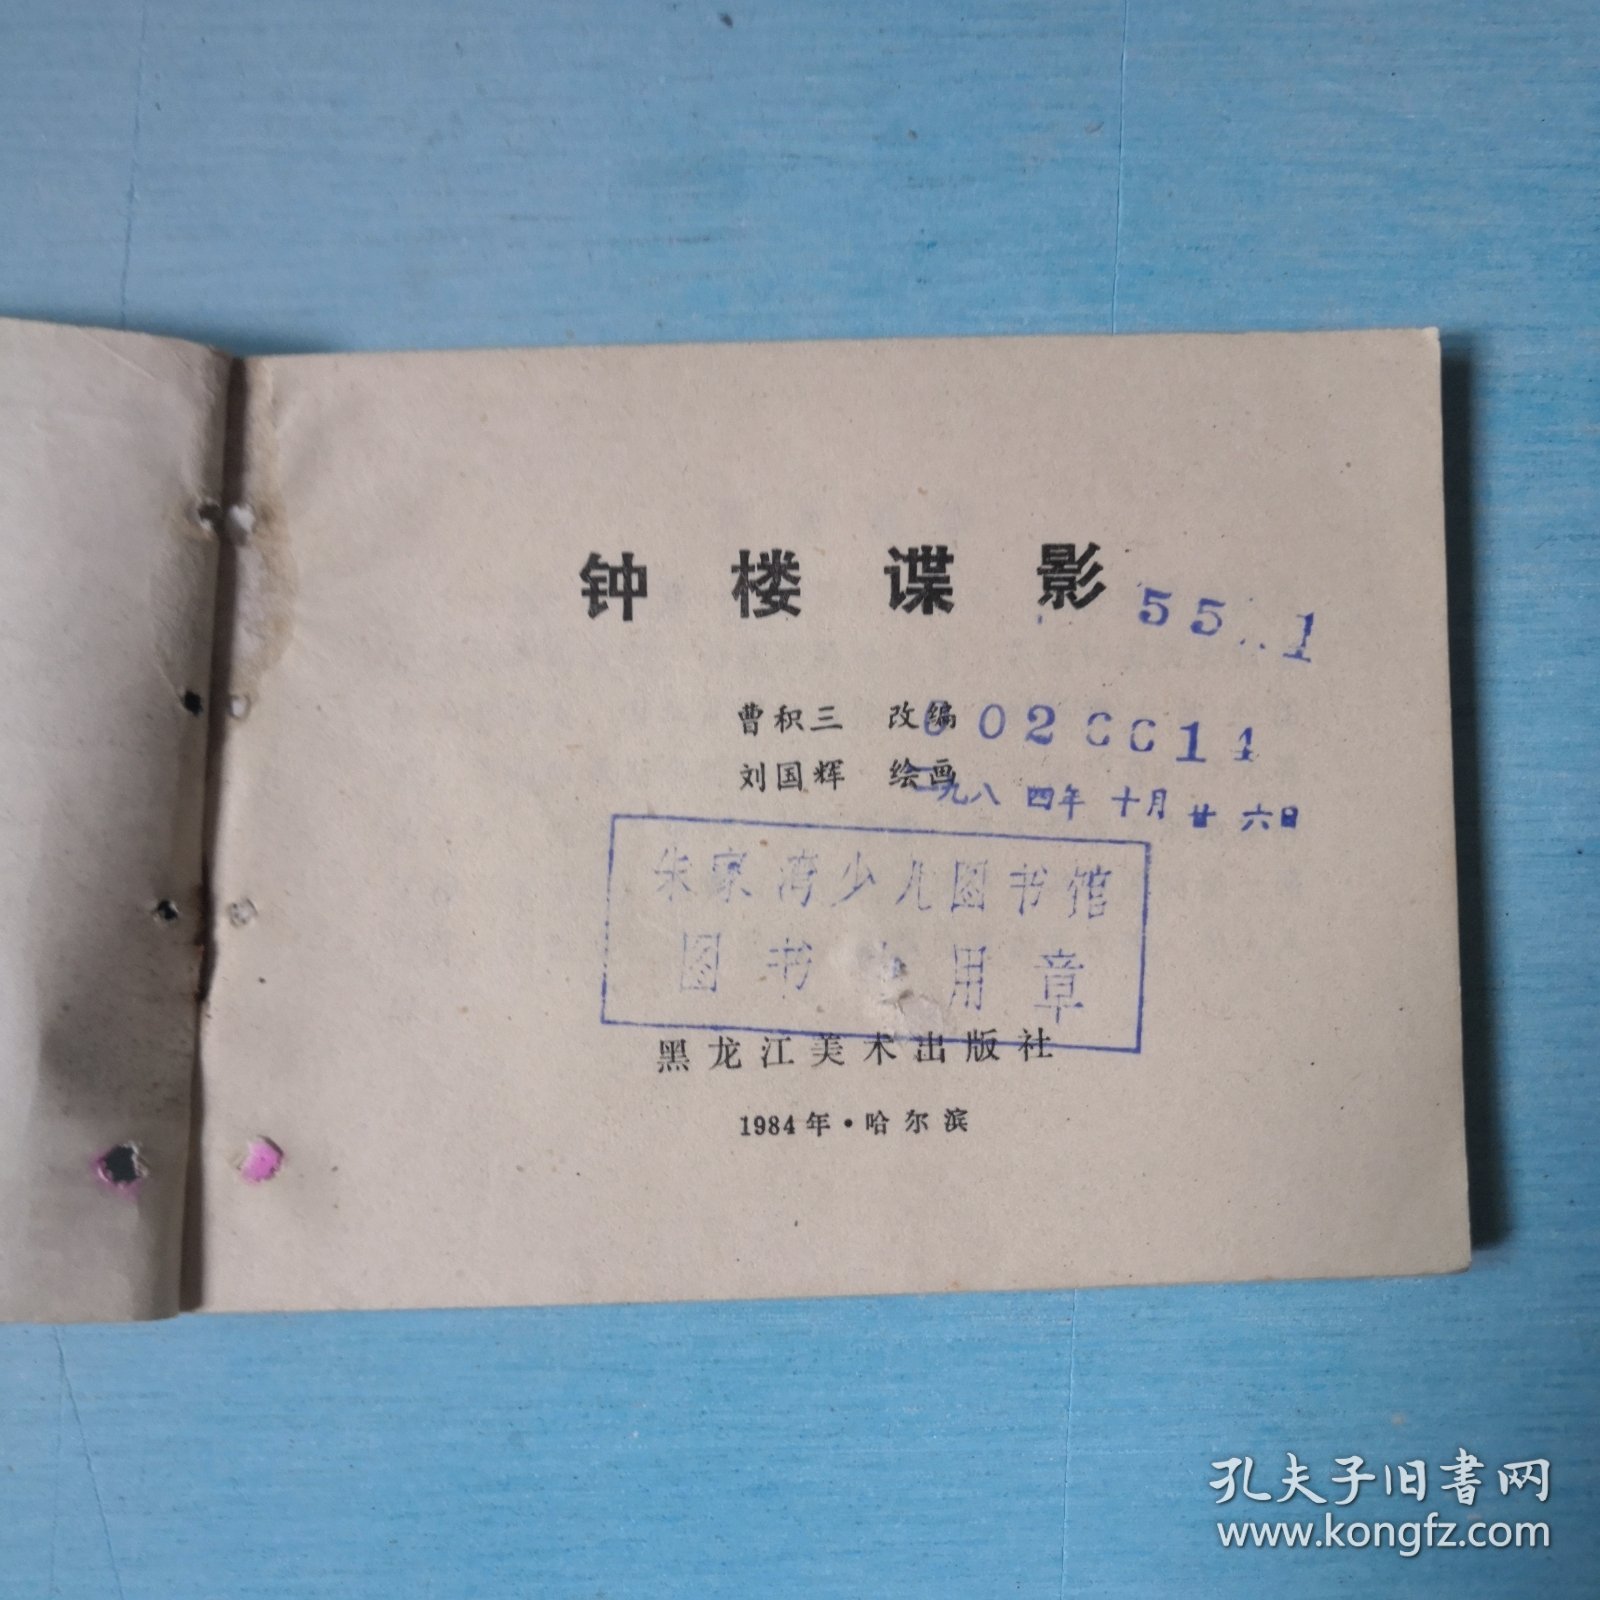 钟楼谍影
55..1
曹积三 改编
002CC14
刘国辉 绘画
一九八四年十月廿六日
朱家湾少儿图书馆
图书专用章
黑龙江美术出版社
1984年·哈尔滨
孔夫子旧书网
www.kongfz.com